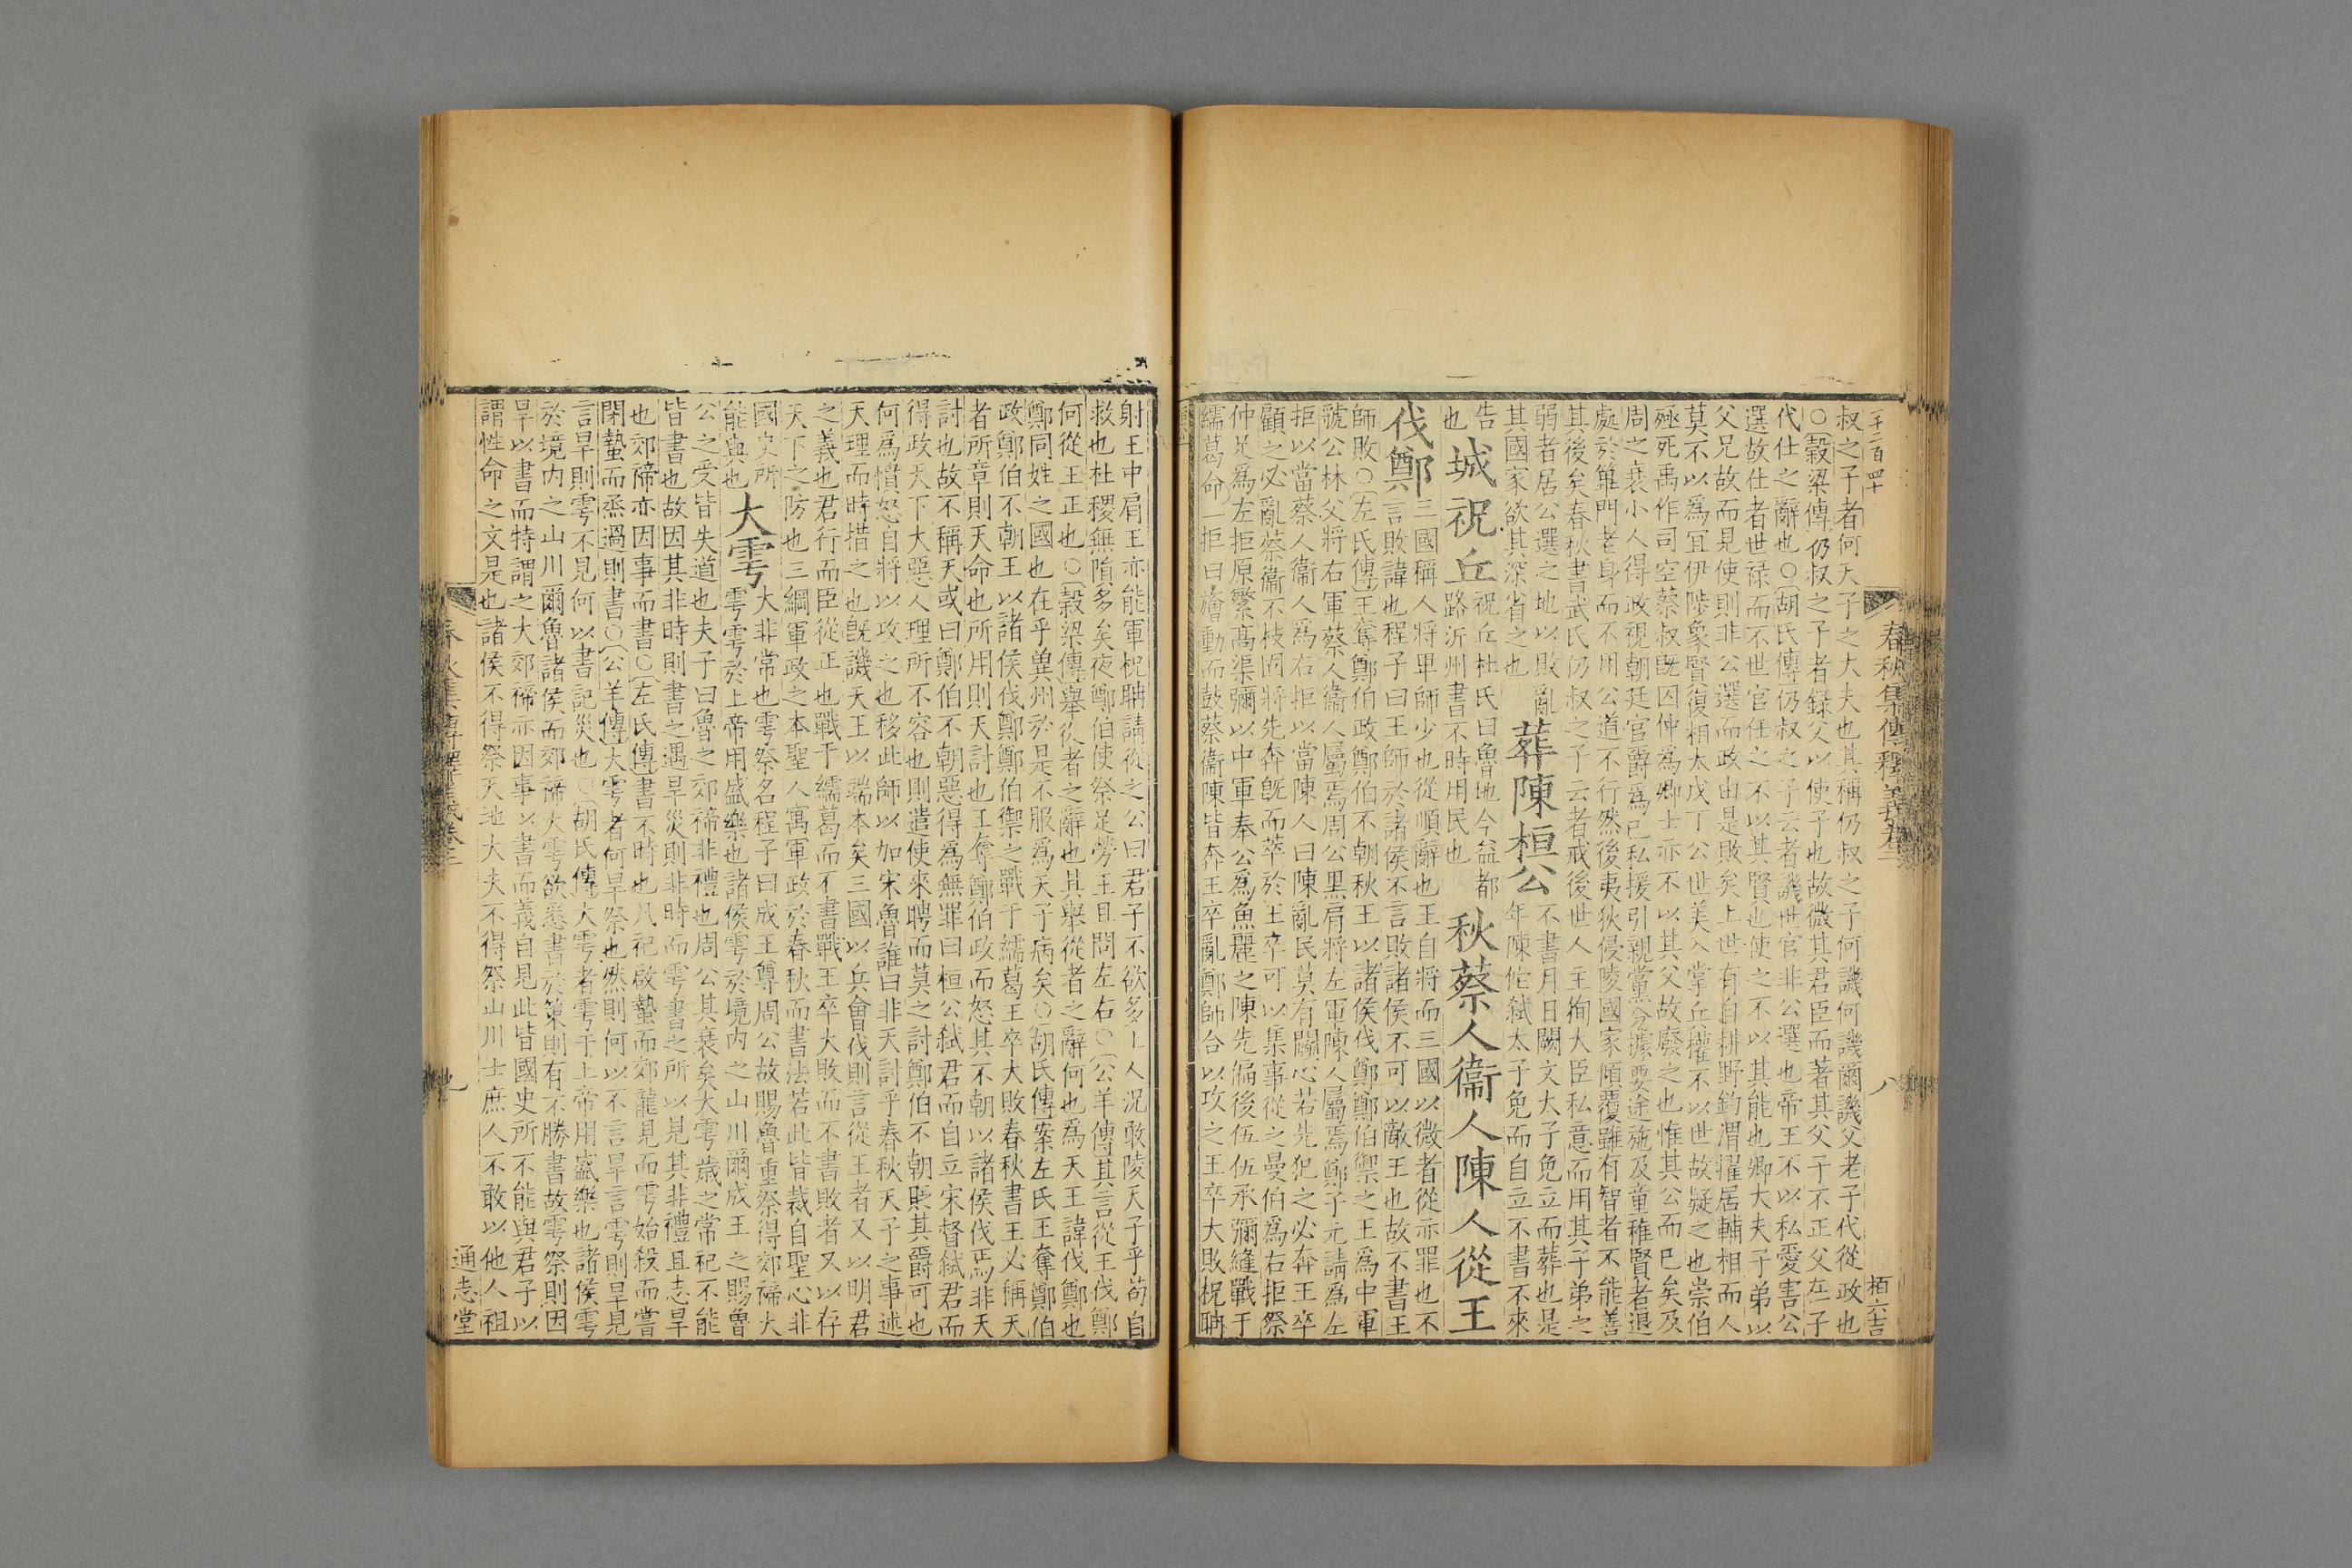 春秋集傳釋義卷三
八
叔之子者何天子之大夫也其稱仍叔之子何譏何譏爾譏父老子代從政也
○穀梁傳仍叔之子者錄父以使子也故微其君臣而著其父子不正父在子
代仕之辭也○胡氏傳仍叔之子云者譏世官非公選也帝王不以私愛害公
選故仕者世祿而不世官任之不以其賢也使之不以其能也卿大夫子弟以
父兄故而見使則非公選而政由是敗矣上世有自耕野釣渭擢居輔相而人
莫不以爲宜伊陟象賢復相太戊丁公世美入掌兵權不以世故疑之也崇伯
殛死禹作司空蔡叔旣囚仲爲卿士亦不以其父故廢之也惟其公而已矣及
周之衰小人得政視朝廷官爵爲己私援引親黨分據要途施及童稚賢者退
處於蓽門老身而不用公道不行然後夷狄侵陵國家傾覆雖有智者不能善
其後矣春秋書武氏仍叔之子云者戒後世人主徇大臣私意而用其子弟之
弱者居公選之地以敗亂
其國家欲其深省之也
葬陳桓公
不書月日闕文太子免立而葬也是
年陳佗弑太子免而自立不書不來
告
也
城祝丘
祝丘杜氏曰魯地今益都
路沂州書不時用民也
秋蔡人衞人陳人從王
伐鄭
三國稱人將卑師少也從順辭也王自將而三國以微者從亦罪也不
言敗諱也程子曰王師於諸侯不言敗諸侯不可以敵王也故不書王
師敗○左氏傳王奪鄭伯政鄭伯不朝秋王以諸侯伐鄭鄭伯禦之王爲中軍
虢公林父將右軍蔡人衞人屬焉周公黑肩將左軍陳人屬焉鄭子元請爲左
拒以當蔡人衞人爲右拒以當陳人曰陳亂民莫有鬬心若先犯之必奔王卒
顧之必亂蔡衞不枝固將先奔旣而萃於王卒可以集事從之曼伯爲右拒祭
仲足爲左拒原繁高渠彌以中軍奉公爲魚麗之陳先偏後伍伍承彌縫戰于
繻葛命二拒曰旝動而鼓蔡衞陳皆奔王卒亂鄭師合以攻之王卒大敗祝聃
射王中肩王亦能軍祝聃請從之公曰君子不欲多上人況敢陵天子乎苟自
救也社稷無隕多矣夜鄭伯使祭足勞王且問左右○公羊傳其言從王伐鄭
何從王正也○穀梁傳舉從者之辭也其舉從者之辭何也爲天王諱伐鄭也
鄭同姓之國也在乎冀州於是不服爲天子病矣○胡氏傳案左氏王奪鄭伯
政鄭伯不朝王以諸侯伐鄭鄭伯禦之戰于繻葛王卒大敗春秋書王必稱天
者所章則天命也所用則天討也王奪鄭伯政而怒其不朝以諸侯伐焉非天
討也故不稱天或曰鄭伯不朝惡得爲無罪曰桓公弑君而自立宋督弑君而
得政天下大惡人理所不容也則遣使來聘而莫之討鄭伯不朝貶其爵可也
何爲憤怒自將以攻之也移此師以加宋魯誰曰非天討乎春秋天子之事述
天理而時措之也旣譏天王以端本矣三國以兵會伐則言從王者又以明君
之義也君行而臣從正也戰于繻葛而不書戰王卒大敗而不書敗者又以存
天下之防也三綱軍政之本聖人寓軍政於春秋而書法若此皆裁自聖心非
國史所
能與也
大雩
大非常也雩祭名程子曰成王尊周公故賜魯重祭得郊禘大
雩雩於上帝用盛樂也諸侯雩於境內之山川爾成王之賜魯
公之受皆失道也夫子曰魯之郊禘非禮也周公其衰矣大雩歲之常祀不能
皆書也故因其非時則書之遇旱災則非時而雩書之所以見其非禮且志旱
也郊禘亦因事而書○左氏傳書不時也凡祀啟蟄而郊龍見而雩始殺而嘗
閉蟄而烝過則書○公羊傳大雩者何旱祭也然則何以不言旱言雩則旱見
言旱則雩不見何以書記災也○胡氏傳大雩者雩于上帝用盛樂也諸侯雩
於境内之山川爾魯諸侯而郊禘大雩欲悉書於策則有不勝書故雩祭則因
旱以書而特謂之大郊禘亦因事以書而義自見此皆國史所不能與君子以
謂性命之文是也諸侯不得祭天地大夫不得祭山川士庶人不敢以他人祖
通志堂